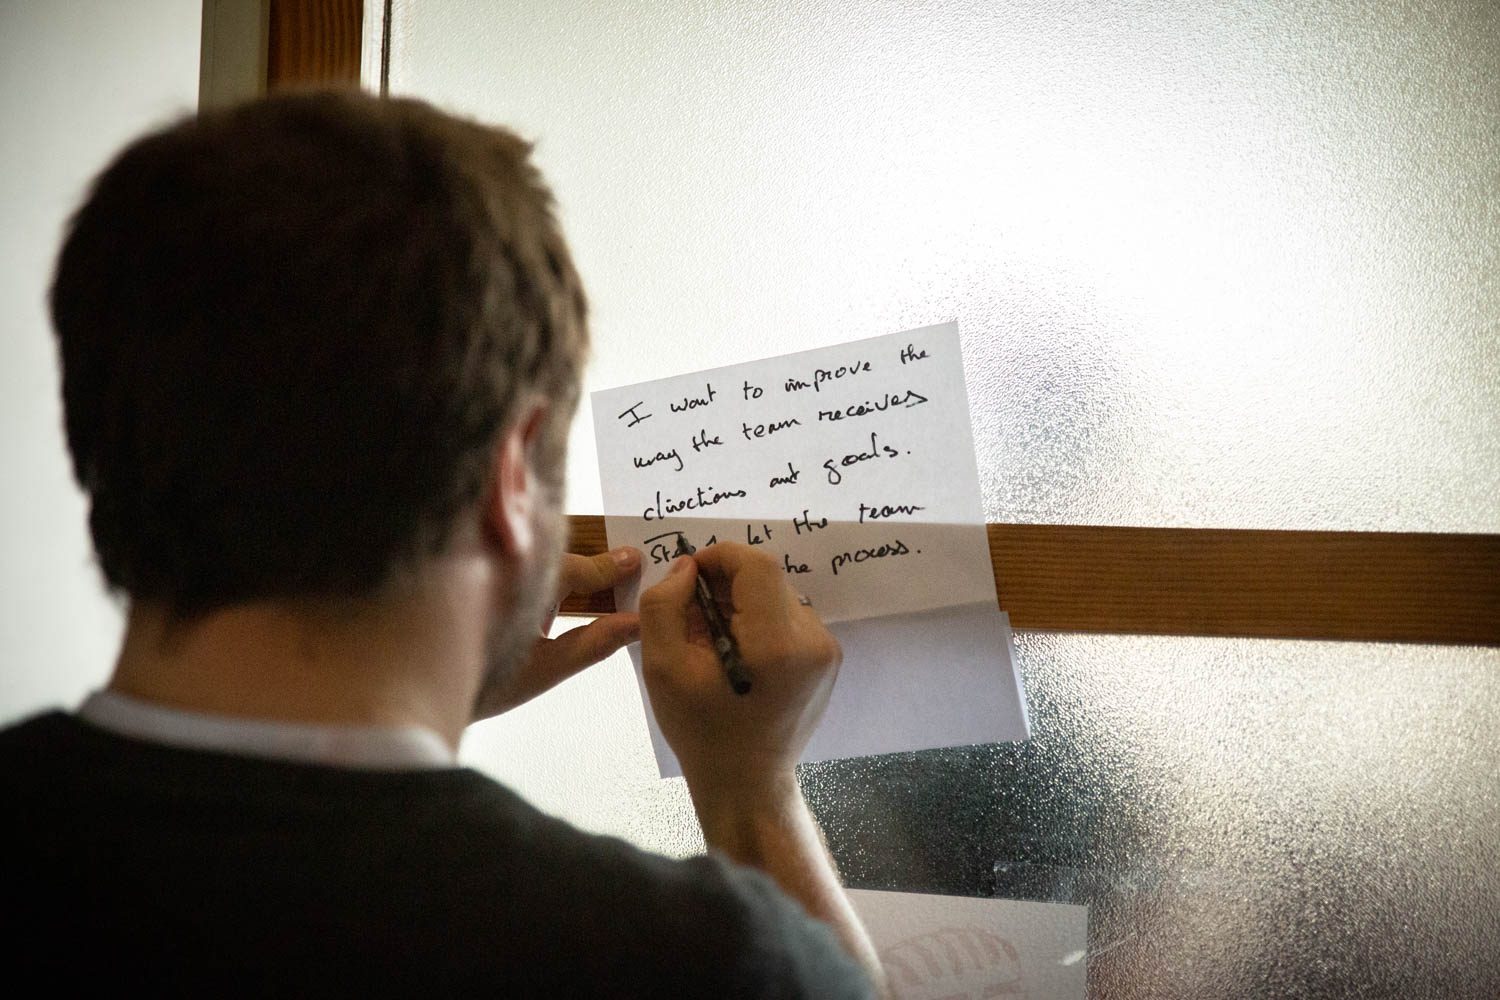 I want to improve the
way the team receives
directions and goals.
Step 1 let the team
the process.